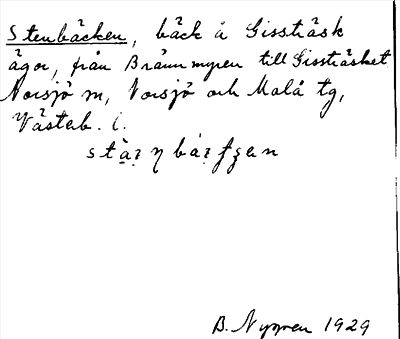 Stenbäcken, bäck å Gissträsk
ägor, från Brännmyren till Gissträsket
Norsjö sn, Norsjö och Malå tg,
Västerb. l.
B. Nygren 1929